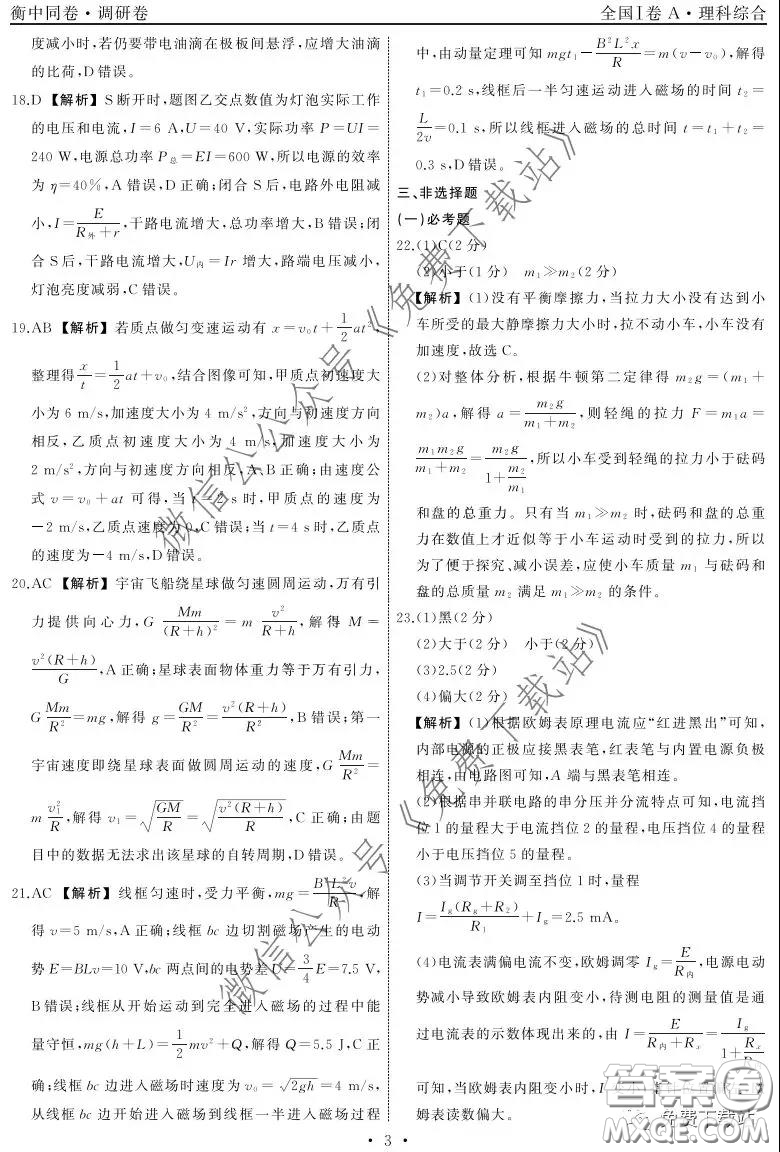 衡中同卷·调研卷
全国Ⅰ卷 A·理科综合
度减小时,若仍要带电油滴在极板间悬浮,应增大油滴
的比荷,D错误。
18.D 【解析】S断开时,题图乙交点数值为灯泡实际工作
的电压和电流,I=6 A,U=40 V,实际功率 P=UI=
240 W,电源总功率P总=EI=600 W,所以电源的效率
为η=40%,A错误,D正确;闭合S后,电路外电阻减
小,I=E/(R外+r),干路电流增大,总功率增大,B错误;闭
合S后,干路电流增大,U内=Ir增大,路端电压减小,
灯泡亮度减弱,C错误。
19.AB 【解析】若质点做匀变速运动有 x=v₀t+1/2 at²,
整理得x/t=1/2 at+v₀,结合图像可知,甲质点初速度大
小为6 m/s,加速度大小为4 m/s²,方向与初速度方向
相反,乙质点初速度大小为4 m/s,加速度大小为
2 m/s²,方向与初速度方向相反,A、B正确;由速度公
式 v=v₀+at 可得,当 t=2 s时,甲质点的速度为
-2 m/s,乙质点速度为0,C错误;当t=4 s时,乙质点
的速度为-4 m/s,D错误。
20.AC 【解析】宇宙飞船绕星球做匀速圆周运动,万有引
力提供向心力,G Mm/(R+h)²=m v²/(R+h),解得 M=
v²(R+h)/G,A正确;星球表面物体重力等于万有引力,
G Mm/R²=mg,解得g=GM/R²=v²(R+h)/R²,B错误;第一
宇宙速度即绕星球表面做圆周运动的速度,G Mm/R²=
m v₁²/R,解得v₁=√(GM/R)=√(v²(R+h)/R),C正确;由题
目中的数据无法求出该星球的自转周期,D错误。
21.AC 【解析】线框匀速时,受力平衡,mg=B²L²v/R,解
得v=5 m/s,A正确;线框 bc 边切割磁场产生的电动
势E=BLv=10 V,bc两点间的电势差U=3/4 E=7.5 V,
B错误;线框从开始运动到完全进入磁场的过程中能
量守恒,mg(h+L)=1/2 mv²+Q,解得Q=5.5 J,C正
确;线框 bc 边进入磁场时速度为v₀=√(2gh)=4 m/s,
从线框 bc 边开始进入磁场到线框一半进入磁场过程
中,由动量定理可知 mgt₁-B²L²x/R=m(v-v₀),解得
t₁=0.2 s,线框后一半匀速运动进入磁场的时间 t₂=
L/2v=0.1 s,所以线框进入磁场的总时间 t=t₁+t₂=
0.3 s,D错误。
三、非选择题
(一)必考题
22.(1)C(2分)
(2)小于(1分) m₁≫m₂(2分)
【解析】(1)没有平衡摩擦力,当拉力大小没有达到小
车所受的最大静摩擦力大小时,拉不动小车,小车没有
加速度,故选C。
(2)对整体分析,根据牛顿第二定律得 m₂g=(m₁+
m₂)a,解得 a=m₂g/(m₁+m₂),则轻绳的拉力 F=m₁a=
m₁m₂g/(m₁+m₂)=m₂g/(1+m₂/m₁),所以小车受到轻绳的拉力小于砝码
和盘的总重力。只有当 m₁≫m₂ 时,砝码和盘的总重
力在数值上才近似等于小车运动时受到的拉力,所以
为了便于探究、减小误差,应使小车质量 m₁ 与砝码和
盘的总质量 m₂ 满足 m₁≫m₂ 的条件。
23.(1)黑(2分)
(2)大于(2分) 小于(2分)
(3)2.5(2分)
(4)偏大(2分)
【解析】(1)根据欧姆表原理电流应“红进黑出”可知,
内部电源的正极应接黑表笔,红表笔与内置电源负极
相连,由电路图可知,A 端与黑表笔相连。
(2)根据串并联电路的串分压并分流特点可知,电流挡
位1的量程大于电流挡位2的量程,电压挡位4的量程
小于电压挡位5的量程。
(3)当调节开关调至挡位1时,量程
I=Ig(Rg+R₂)/R₁+Ig=2.5 mA。
(4)电流表满偏电流不变,欧姆调零 Ig=E/R内,电源电动
势减小导致欧姆表内阻变小,待测电阻的测量值是通
过电流表的示数体现出来的,由 I=E/(R内+Rx)=Ig/(1+Rx/R内)
可知,当欧姆表内阻变小时,I
姆表读数偏大。
·3·
微信公众号《免费下载站》
微信公众号《免费下载站》
答案圈
免费下载站